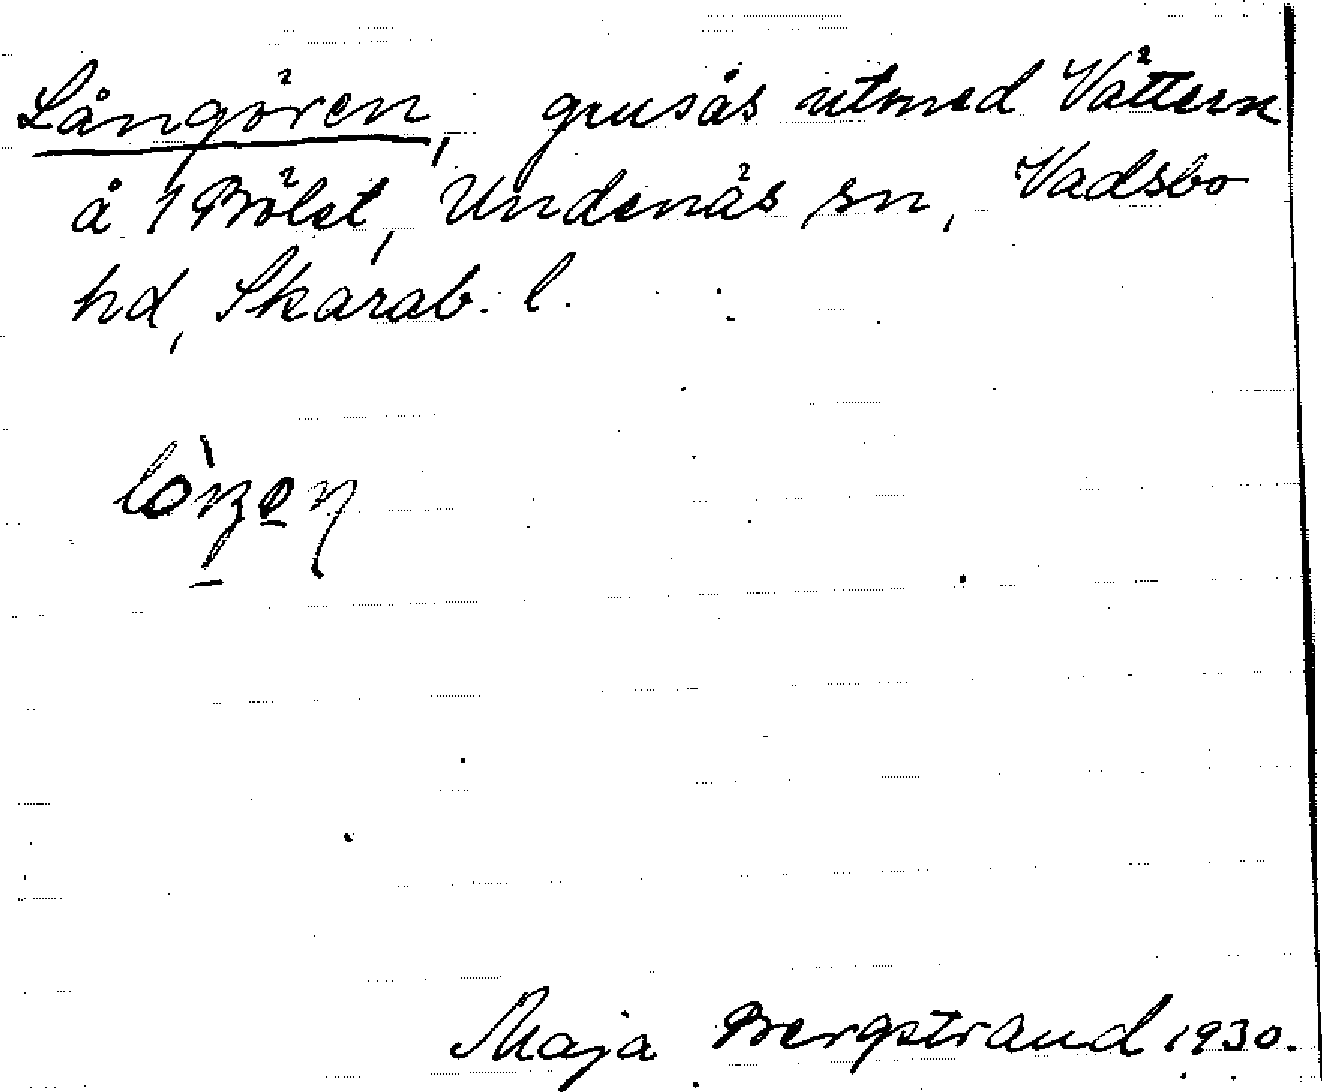 Långören, grusås utmed Vättern
å 1 Bölet, Undenäs sn, Vadsbo
hd, Skarab. l.
Maja Bergstrand 1930.